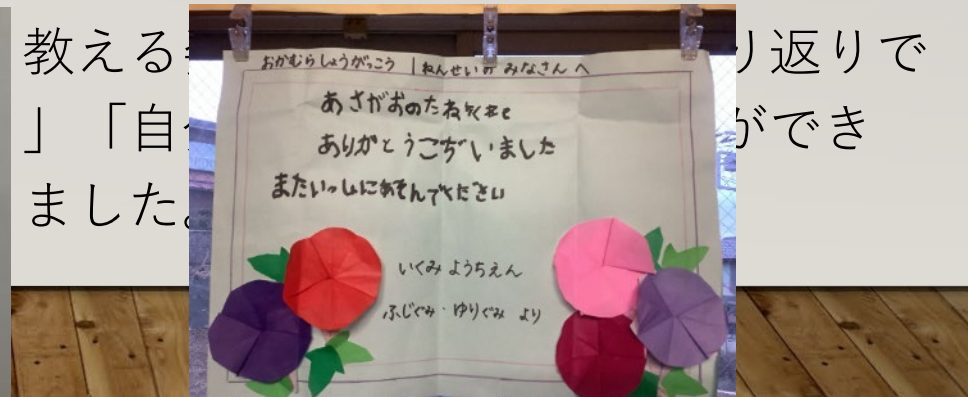 教える り返りで
」「自 ができ
ました。
おかむらしょうがっこう 1ねんせいの みなさんへ
あさがおのたねをくれて
ありがとうございました
またいっしょにあそんでください
いくみ ようちえん
ふじぐみ・ゆりぐみ より